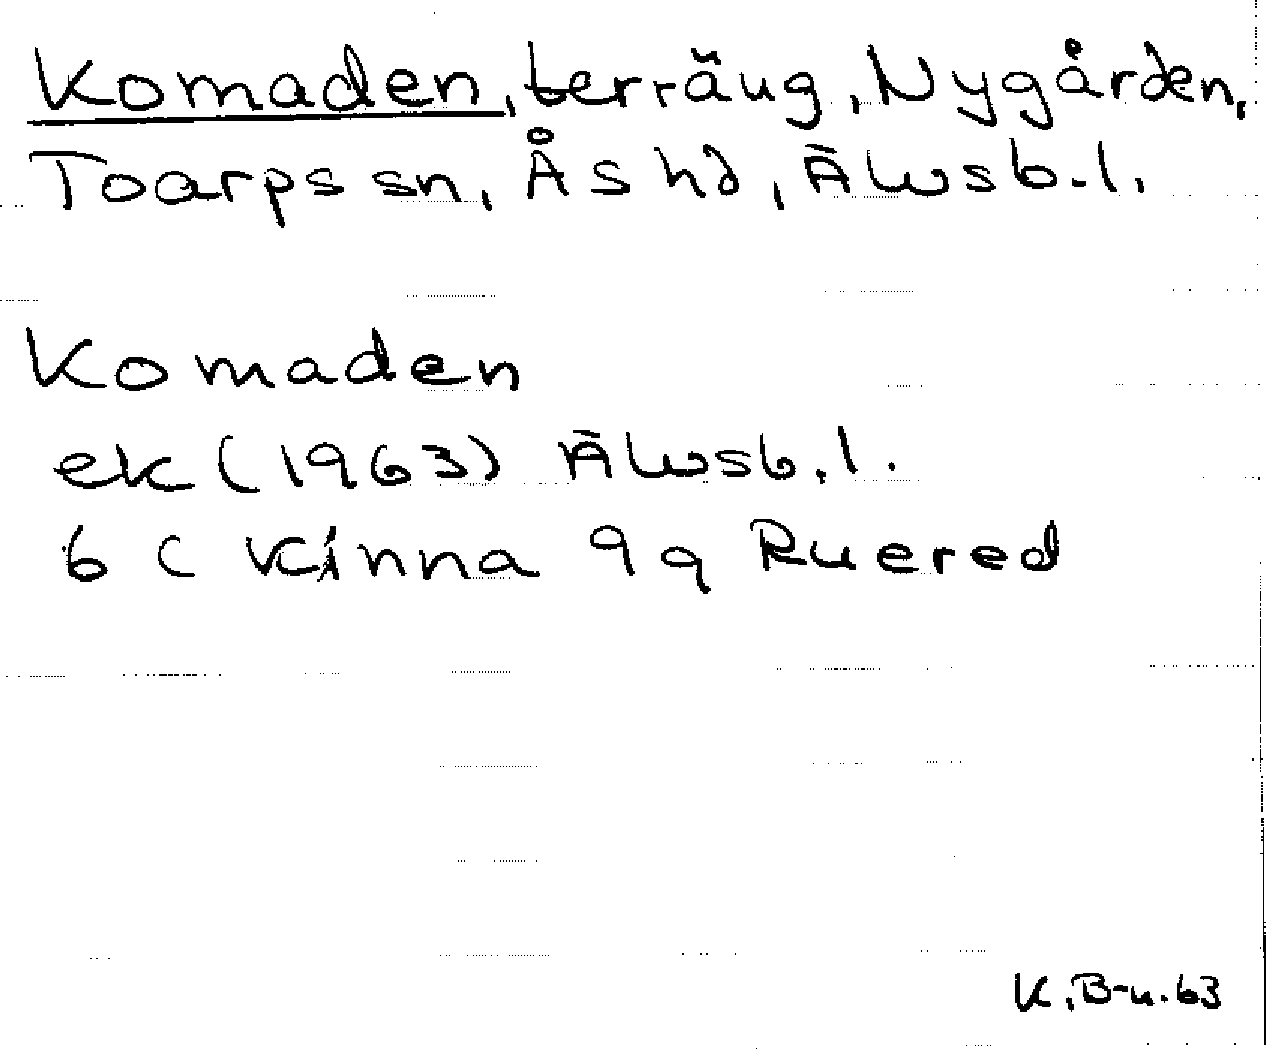 Komaden, terräng, Nygården,
Toarps sn, Ås hd, Älvsb. l.
Komaden
ek (1963) Älvsb. l.
6 C Kinna 9 q Ruered
K. B-n. 63